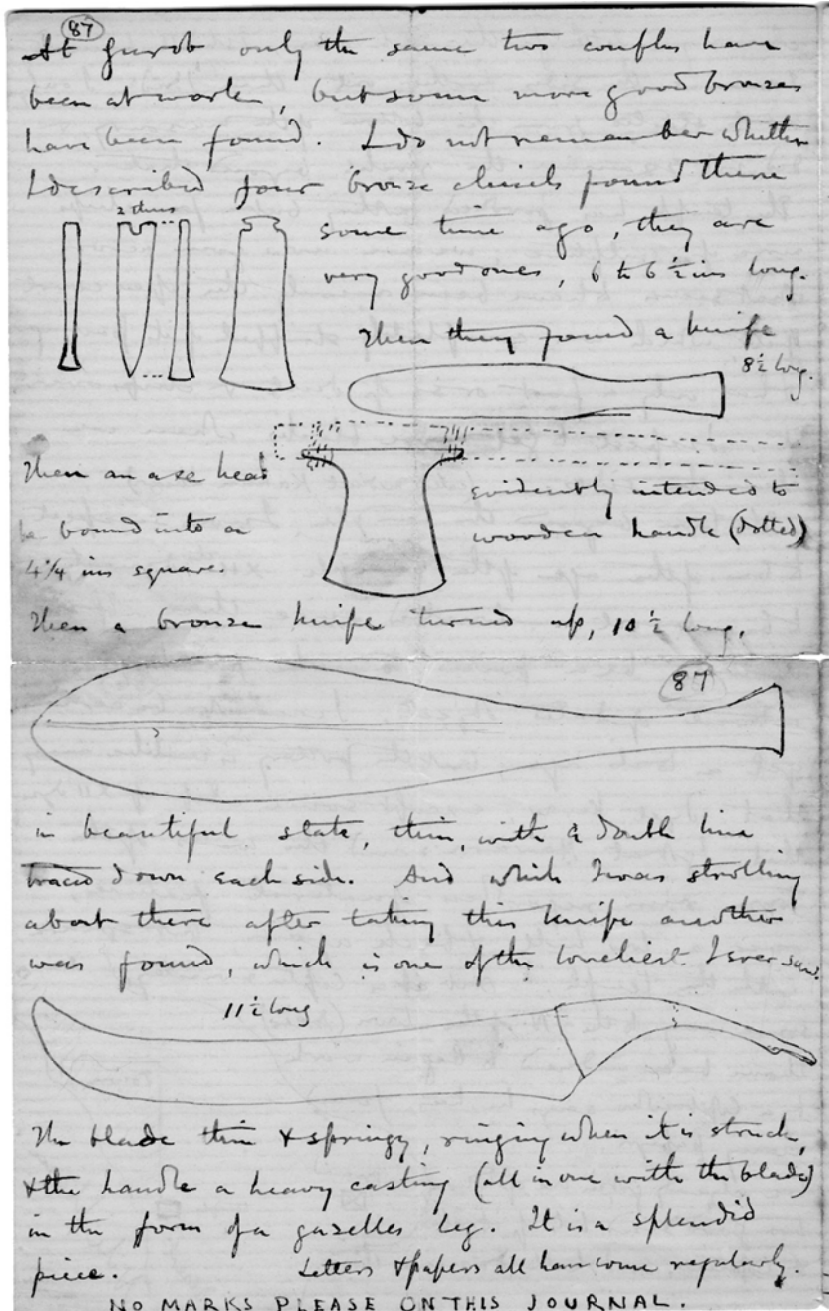 87
At Gurob only the same two couples have
been at work, but some more good bronzes
have been found. I do not remember whether
I described four bronze chisels found there
2 thus
some time ago, they are
very good ones, 6 to 6½ ins long.
Then they found a knife
8½ long.
Then an axe head
evidently intended to
be bound into a
wooden handle (dotted)
4¼ ins square.
Then a bronze knife turned up, 10½ long,
87
in beautiful state, thin, with a double line
traced down each side. And while I was strolling
about there after taking this knife another
was found, which is one of the loveliest I ever saw.
11½ long
The blade thin & springy, ringing when it is struck,
& the handle a heavy casting (all in one with the blade)
in the form of a gazelles leg. It is a splendid
piece. Letters & papers all have come regularly.
NO MARKS PLEASE ON THIS JOURNAL.